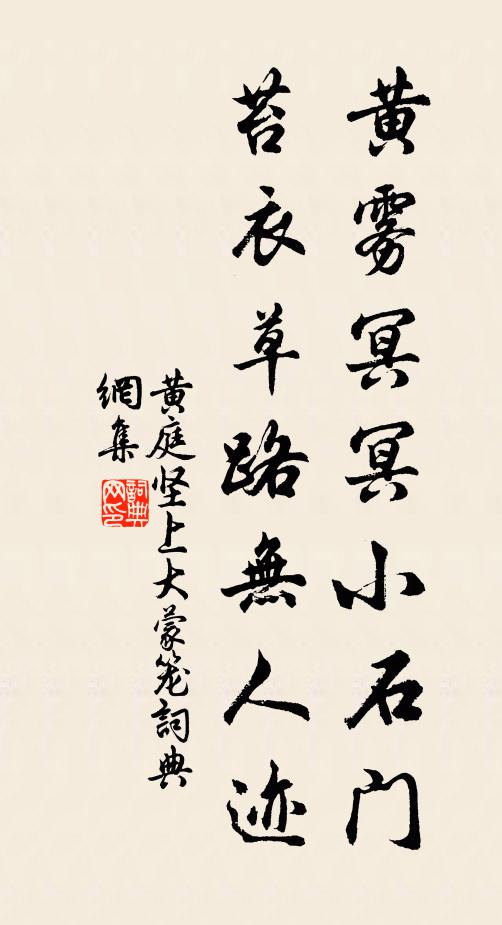 黄雾冥冥小石门
苔衣草路無人迹
黄庭坚上大蒙笼詞典
網集
詞典
网印